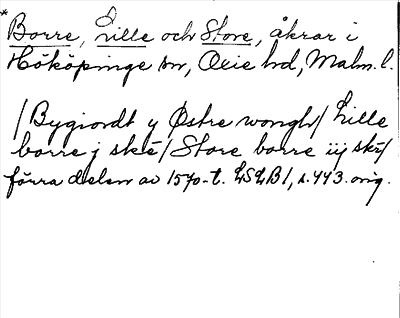 *Borre, Lille och Store, åkrar i
Hököpinge sn, Oxie hd, Malm. l.
/Bygiordt y Østre wongh/ Lille
borre j ske/ Store borre iij ske/
förra delen av 1570-t. LSLB1, s. 443. orig.